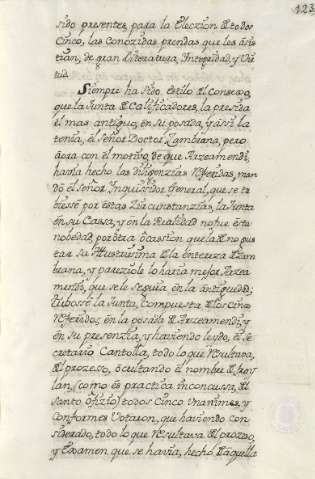 123
sido presentes, para la Eleczion de todos
Cinco, las Conozidas prendas que les asis-
tian, de gran Literatura, Integridad, y Vir-
tud.
Siempre ha sido estilo del Consejo,
que la Junta de Calificadores, la presida
el mas antiguo, en su posada, y assi la
tenia, el Señor Doctor Zambrana, pero
aora con el motivo, de que Arzeamendi,
havia hecho las diligenzias referidas, man-
dó el Señor Inquisidor General, que se tu-
biesse por estas Zircunstanzias, la Junta
en su Cassa, y en la Realidad no fue esta
nobedad, por otra ocasion que la de no gus-
tar su Illustrisima de la entereza de Zam-
brana, y pareziole lo haria mejor Arzea-
mendi, que se le seguia en la antiguedad;
tubosse la Junta, Compuesta de los Cinco
referidos, en la posada de Arzeamendi, y
en su presenzia, y haviendo leydo, el Se-
cretario Cantolla, todo lo que resultava,
del prozeso, ocultando el nombre de froy-
lan, (como es practica inconcussa, del
Santo ofizio) todos Cinco Unanimes, y
Conformes Votaron, que haviendo con-
siderado, todo lo que resultava del prozeso,
y Examen que se havia, hecho de aquella